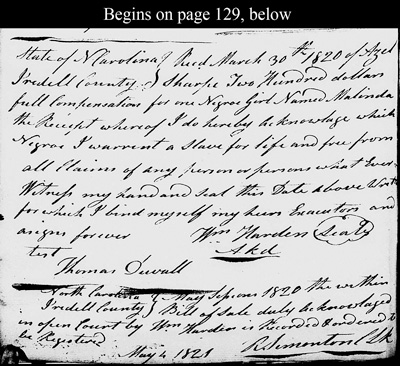 Begins on page 129, below
State of N Carolina } Recd March 30th 1820 of Azel
Iredell County } Sharpe Two Hundred dollars
full Compensation for one Negroe Girl Named Malinda
the Receipt whereof I do hereby acknowlage which
Negroe I warrent a Slave for life and free from
all Claims of any person or persons what Ever
Witness my hand and seal this Date above Writ
for which I bind myself my heirs Executors and
asigns forever Wm Harden Seal
test
Thomas Duvall
North Carolina } May Sessions 1820 the within
Iredell County } Bill of Sale duly acknolaged
in open Court by Wm Harden is Recorded & ordered to
be Registered
May 4 1821 R Simonton Clk